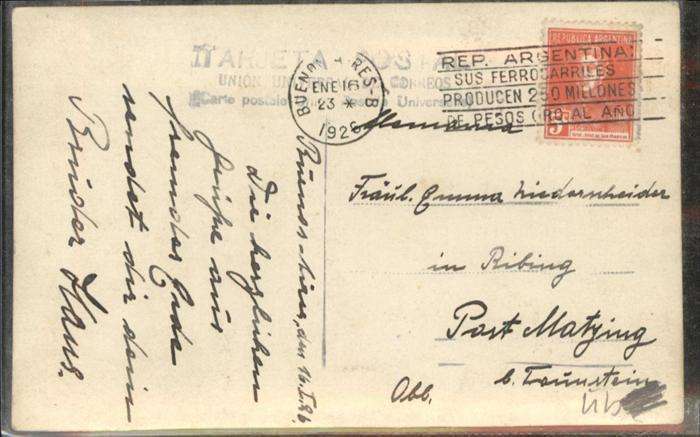 TARJETA POSTAL
UNION UNIVERSAL DE CORREOS
Carte postale Universelle
BUENOS AIRES-B
ENE 16
23 *
1926
REP. ARGENTINA
SUS FERROCARRILES
PRODUCEN 250 MILLONES
DE PESOS ORO AL AÑO
REPUBLICA ARGENTINA
5
Alemania
Fräul. Emma Niederscheider
in Ribing
Post Matzing
b. Traunstein
Obb.
Buenos-Aires, den 16.I.26
Die herzlichen
Grüße aus
fremder Erde
sendet dir dein
Bruder Hans.